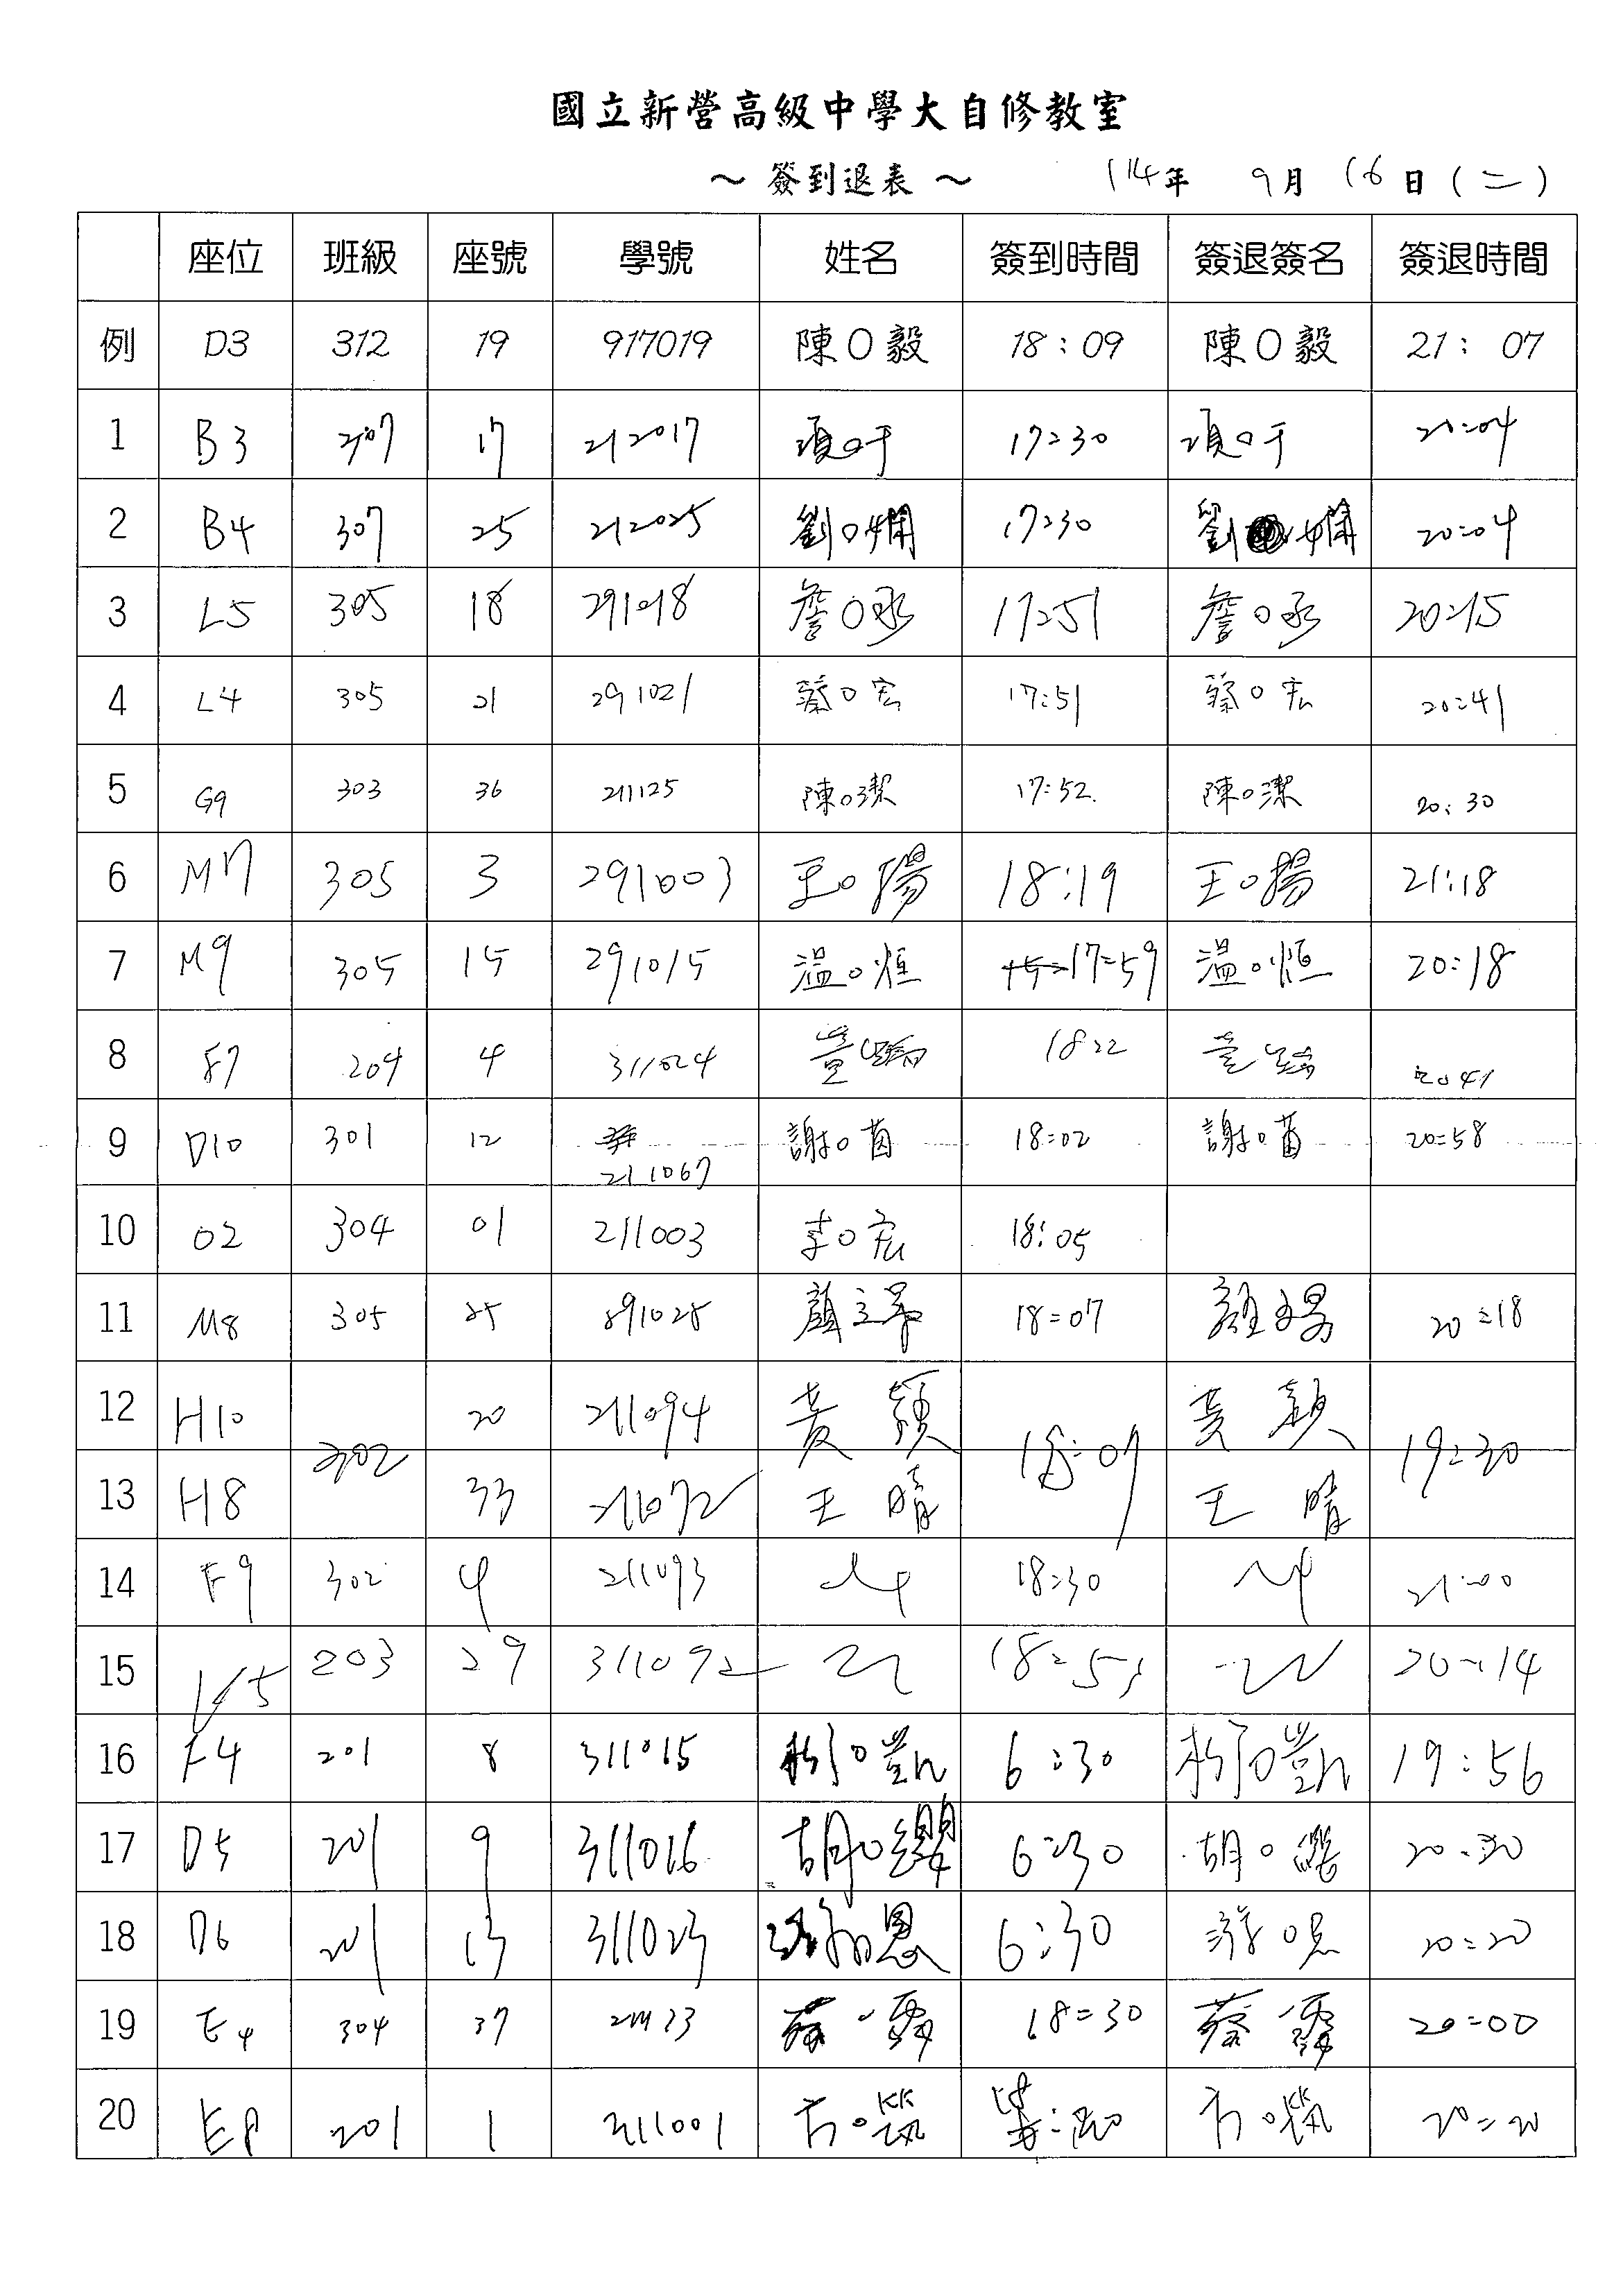 國立新營高級中學大自修教室
～ 簽到退表 ～ 114年 9月 16日(二)
座位 班級 座號 學號 姓名 簽到時間 簽退簽名 簽退時間
例 D3 312 19 917019 陳O毅 18:09 陳O毅 21:07
1 B3 307 17 212017 項O于 17:30 項O于 20:04
2 B4 307 25 212025 劉O嫻 17:30 劉 嫻 20:04
3 L5 305 18 291018 詹O丞 17:51 詹O丞 20:15
4 L4 305 21 291021 蔡O宏 17:51 蔡O宏 20:41
5 G9 303 36 211125 陳O潔 17:52 陳O潔 20:30
6 M7 305 3 291003 王O陽 18:19 王O揚 21:18
7 M9 305 15 291015 溫O恒 17:59 溫O恒 20:18
8 F7 204 4 311024 18:22 20:41
9 D10 301 12 211067 謝O茵 18:02 謝O茵 20:58
10 O2 304 01 211003 李O宏 18:05
11 M8 305 25 891025 顏 18:07 顏 20:18
12 H10 302 20 211094 黃 穎 18:07 黃 穎 19:30
13 H8 33 211072 王 晴 王 晴
14 F9 302 4 211093 18:30 21:00
15 203 29 311092 20:14
16 F4 201 8 311015 O凱 6:30 O凱 19:56
17 D5 201 9 311016 胡O纓 6:30 胡O 20:30
18 D6 201 13 311023 恩 6:30 游O恩 20:20
19 E4 304 37 蔡 霈 18:30 蔡 霈 20:00
20 E8 201 1 311001 方O筑 方O筑 20:20